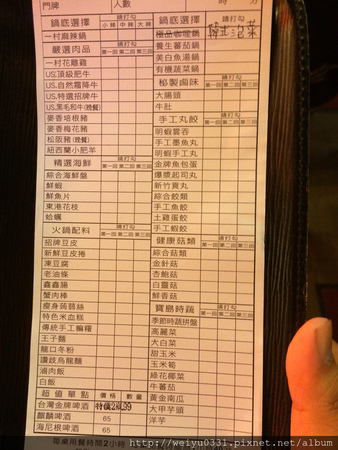 門牌 人數 時 分
鍋底選擇 請打勾
小辣 中辣 大辣
一村麻辣鍋
嚴選肉品 請打勾
第一回 第二回 第三回
一村花雕雞
US.頂級肥牛
US.自然霜降牛
US.特選招牌牛
US.黑毛和牛(晚餐)
麥香培根豬
麥香梅花豬
松阪豬(晚餐)
紐西蘭小肥羊
精選海鮮 請打勾
第一回 第二回 第三回
綜合海鮮盤
鮮蝦
鮮魚片
東港花枝
蛤蠣
火鍋配料 請打勾
第一回 第二回 第三回
招牌豆皮
新鮮豆皮捲
凍豆腐
老油條
鑫鑫腸
蟹肉棒
瘦身蒟蒻絲
特色米血糕
傳統手工豬糟
王子麵
龍口冬粉
讚歧烏龍麵
滷肉飯
白飯
超值單點 價格 數量
台灣金牌啤酒 特價
麒麟啤酒 65
海尼根啤酒 65
每桌用餐時間2小時
鍋底選擇 請打勾
極品咖哩鍋 韓式泡菜
養生蕃茄鍋
美白魚湯鍋
有機蔬菜鍋
秘製滷味 請打勾
第一回 第二回 第三回
大腸頭
牛肚
手工丸餃 請打勾
第一回 第二回 第三回
明蝦雲吞
手工墨魚丸
明蝦手工丸
金牌魚包蛋
爆漿起司丸
新竹貢丸
綜合餃類
手工魚餃
土雞蛋餃
手工蝦餃
健康菇類 請打勾
第一回 第二回 第三回
綜合菇類
金針菇
杏鮑菇
白靈菇
鮮香菇
寶島時蔬 請打勾
第一回 第二回 第三回
季節時蔬拼盤
高麗菜
大白菜
甜玉米
玉米筍
綠花椰菜
牛蕃茄
黃金南瓜
大甲芋頭
洋芋
http://weiyu0331.pixnet.net/album